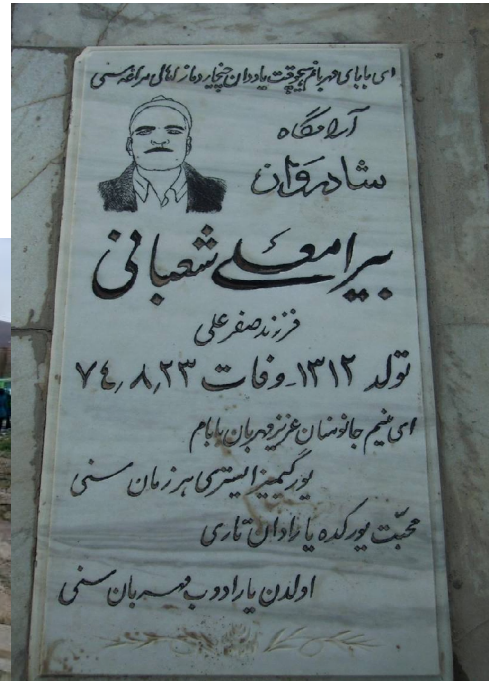 ای بابای مهربانم هیچوقت یاددان چیخارد ماز اهالی مراغه سنی
آرامگاه
شادروان
بیرامعلی شعبانی
فرزند صفرعلی
تولد ۱۳۱۲ - وفات ۷۴٫۸٫۲۳
ای منیم جانوننان عزیز مهربان بابام
یورگیمیز ایستری هر زمان سنی
محبّت یورکده یارادان تاری
اولدن یارادوب مهربان سنی